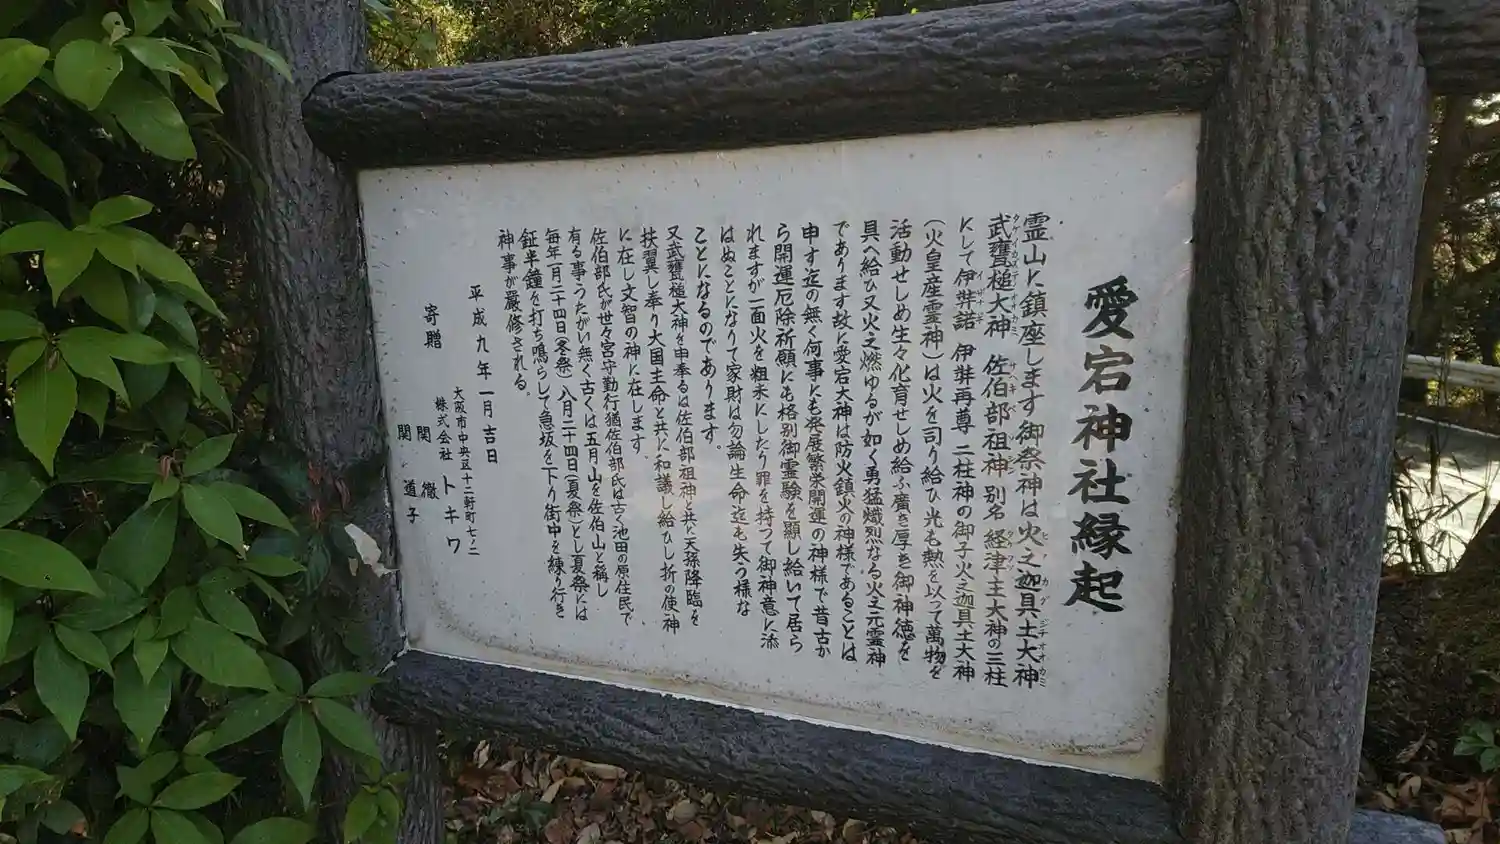 愛宕神社縁起
霊山に鎮座します御祭神は火之迦具土大神
武甕槌大神 佐伯部祖神 別名 経津主大神の三柱
にして伊弉諾 伊弉再尊 二柱神の御子火之迦具土大神
(火皇産霊神)は火を司り給ひ光も熱を以って萬物を
活動せしめ生々化育せしめ給ふ廣き厚き御神徳を
具へ給ひ又火之燃ゆるが如く勇猛熾烈なる火之元霊神
であります故に愛宕大神は防火鎮火の神様であることは
申す迄の無く何事にも発展繁栄開運の神様で昔古か
ら開運厄除祈願にも格別御霊験を顕し給いて居ら
れますが一面火を粗末にしたり罪を持つて御神意に添
はぬことになりて家財は勿論生命迄も失う様な
ことになるのであります。
又武甕槌大神を申奉るは佐伯部祖神と共に天孫降臨を
扶翼し奉り大国主命と共に和議し給ひし折の使神
に在し文智の神に在します。
佐伯部氏が世々宮守勤行猶佐伯部氏は古く池田の原住民で
有る事うたがい無く古くは五月山を佐伯山と称し
毎年一月二十四日(冬祭)八月二十四日(夏祭)とし夏祭には
鉦半鐘を打ち鳴らして急坂を下り街中を練り行き
神事が厳修される。
平成九年一月吉日
大阪市中央区十二軒町七ノ二
寄贈 株式会社トキワ
関 徹
関 道子